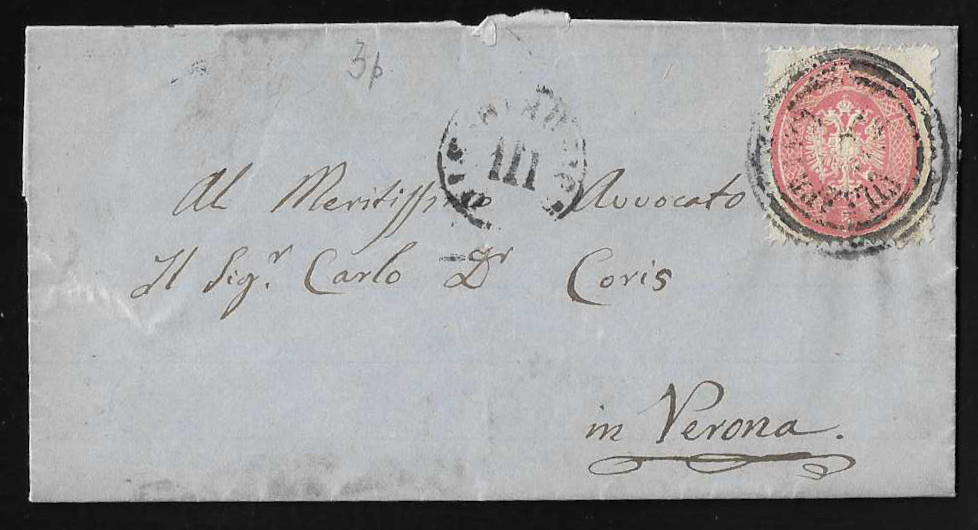 3p
III
Al Meritissimo Avvocato
Il Sig.r Carlo Dr Coris
in Verona.